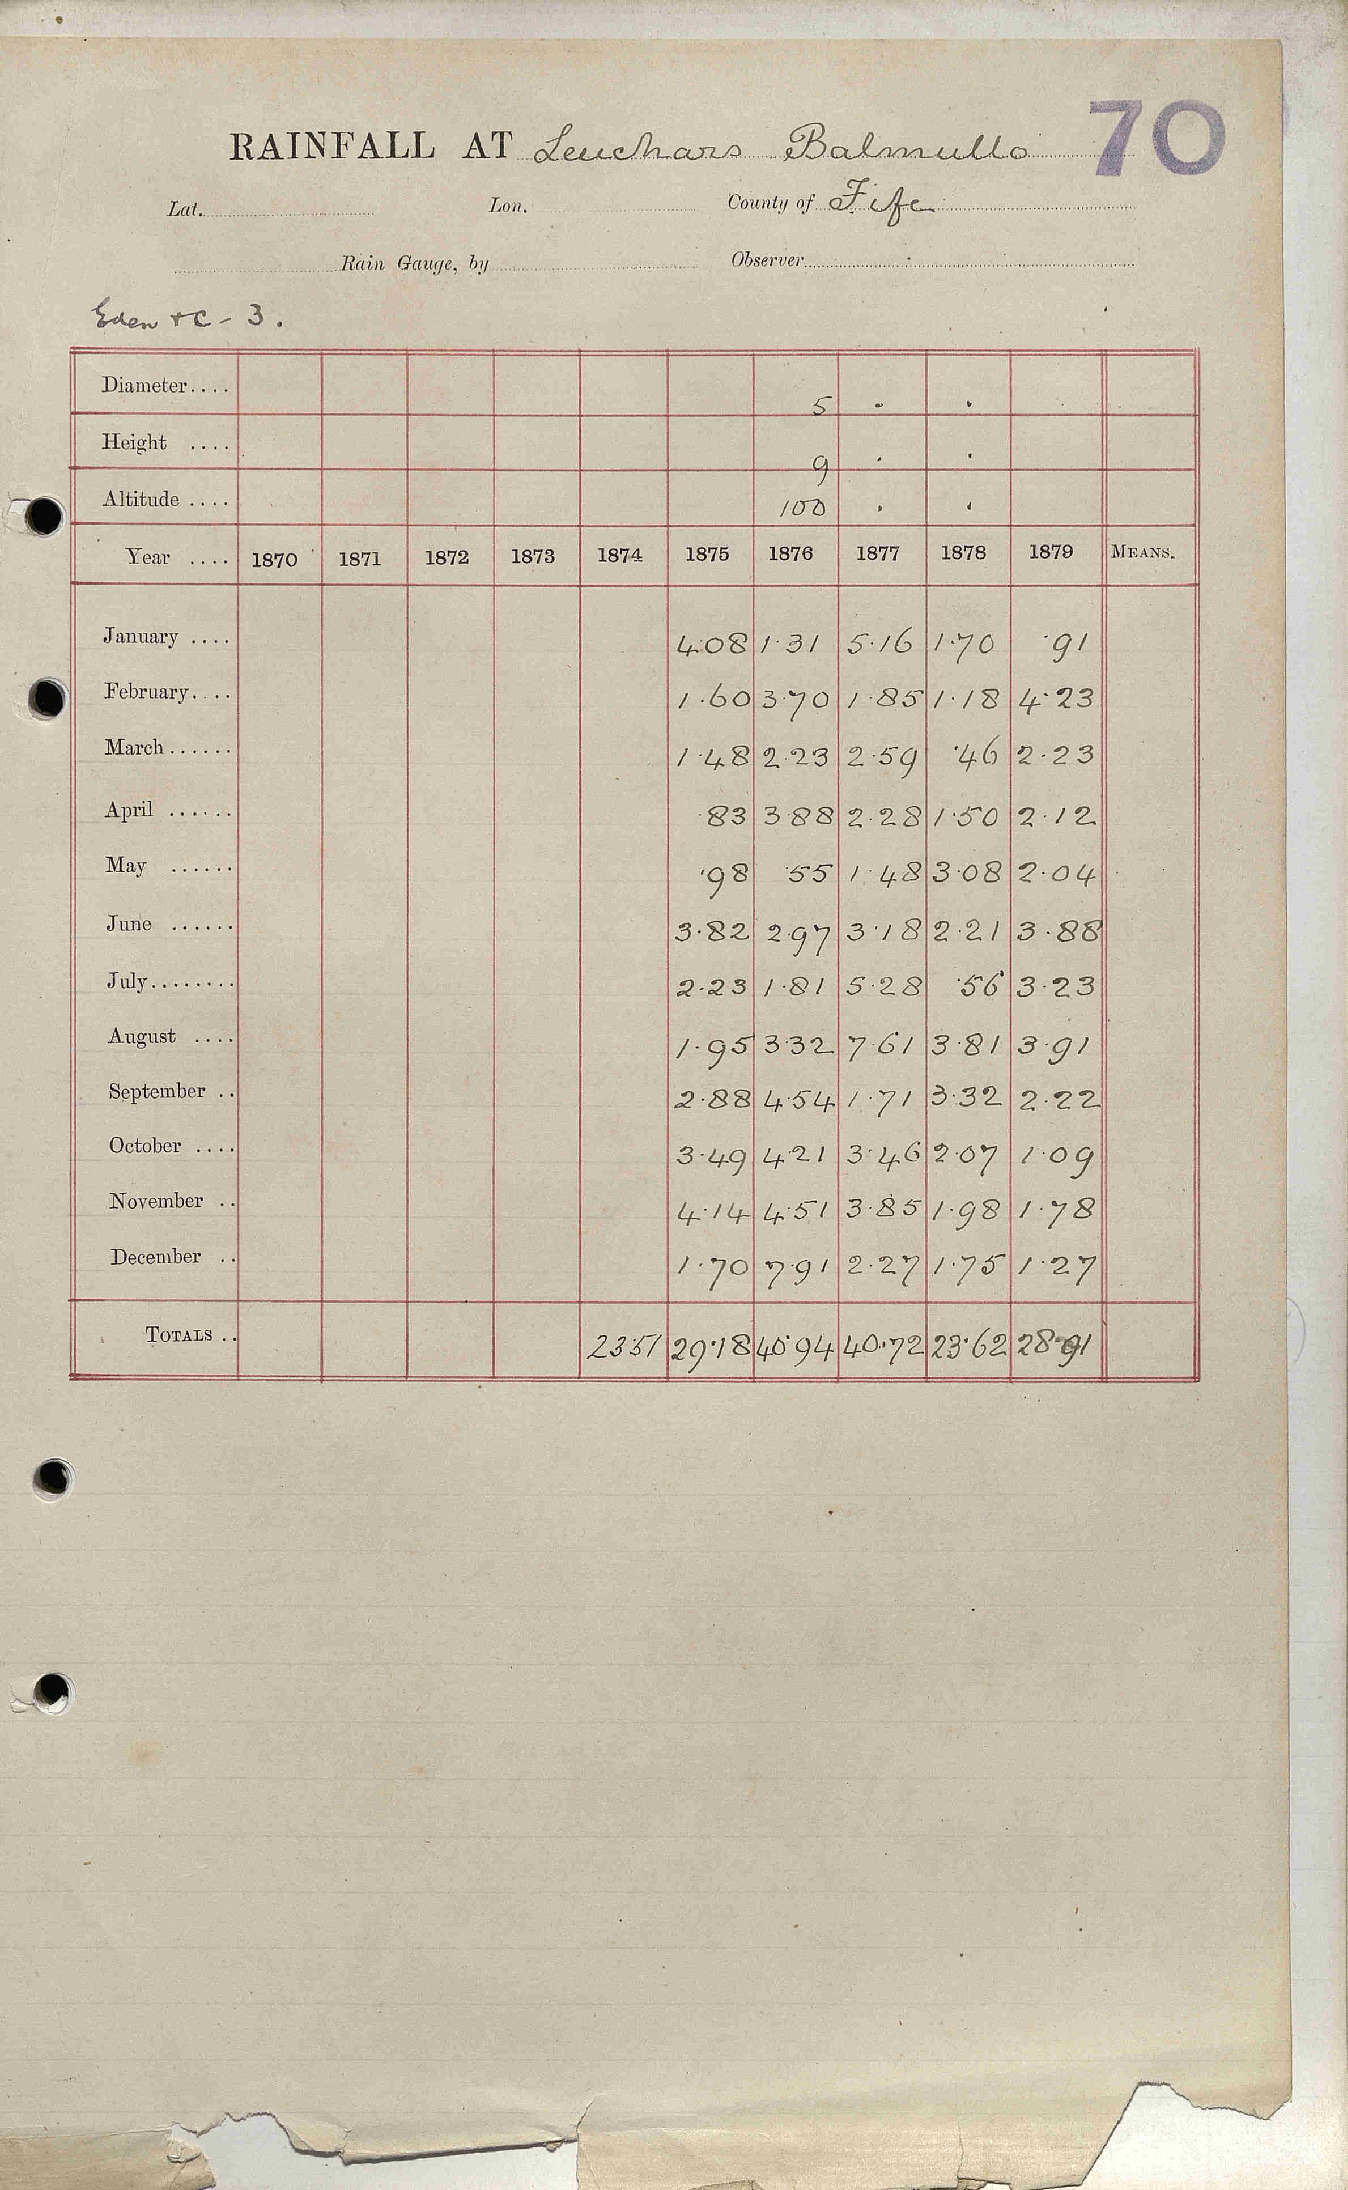 70
RAINFALL AT Leuchars Balmullo
Lat. Lon. County of Fife
Rain Gauge, by Observer
Eden + C - 3.
Diameter.... 5 . .
Height .... 9 . .
Altitude .... 100 . .
Year .... 1870 1871 1872 1873 1874 1875 1876 1877 1878 1879 MEANS.
January .... 4.08 1.31 5.16 1.70 .91
February.... 1.60 3.70 1.85 1.18 4.23
March...... 1.48 2.23 2.59 .46 2.23
April ...... .83 3.88 2.28 1.50 2.12
May ...... .98 .55 1.48 3.08 2.04
June ...... 3.82 2.97 3.18 2.21 3.88
July........ 2.23 1.81 5.28 .56 3.23
August .... 1.95 3.32 7.61 3.81 3.91
September .. 2.88 4.54 1.71 3.32 2.22
October .... 3.49 4.21 3.46 2.07 1.09
November .. 4.14 4.51 3.85 1.98 1.78
December .. 1.70 7.91 2.27 1.75 1.27
TOTALS .. 23.51 29.18 40.94 40.72 23.62 28.91